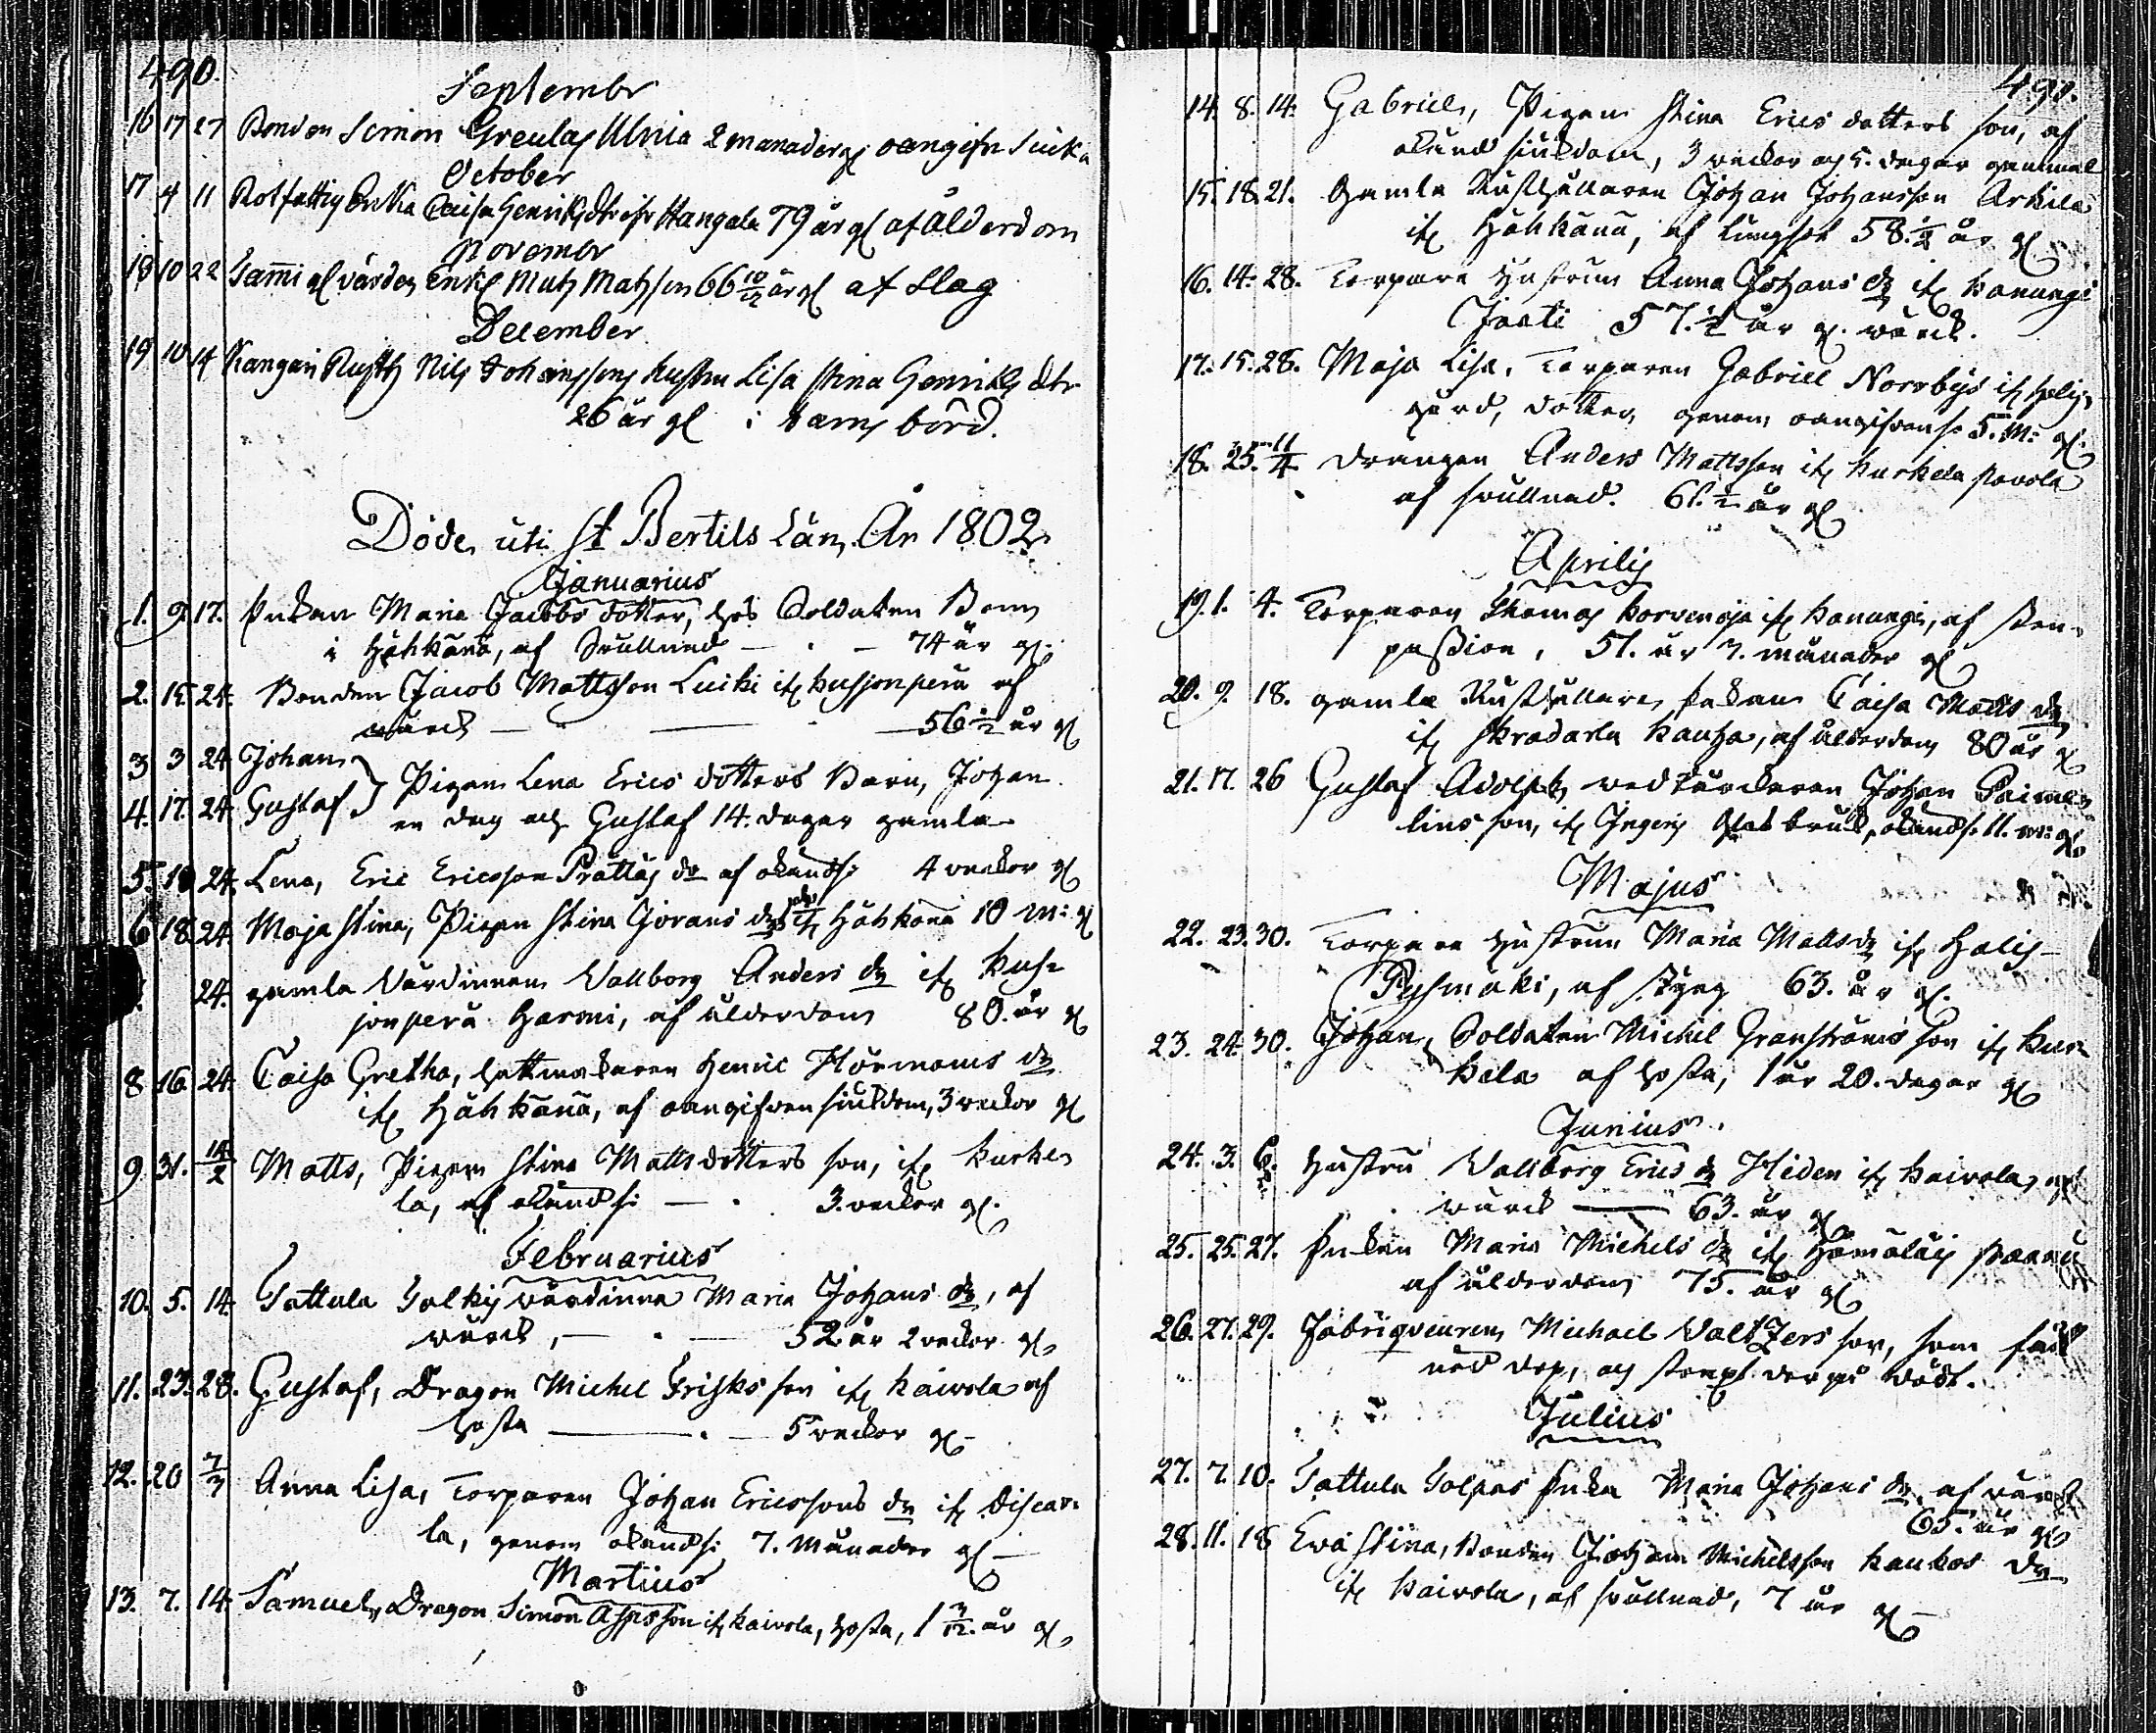 490.
Septembr
16 17 27 Bonden Simon Greulas Ulrica 2 manader gl oangifn Siuk
October
17 4 11 Rotfattig Enka Caisa Henriksdtr ifr Hangala 79 år gl af Ålderdom
Novembr
18 10 22 Sami gl värden Enkl Matz Matzson 66 10/12 år gl af Slag
December
19 10 14 Kangari Rusth Nils Johanssons hustru Lisa Stina Henriks dtr
26 år gl i barns börd.
Döde uti St Bertils Län, År 1802
Januarius
1. 9. 17. Enkan Maria Jacobs dotter, hos Soldaten Bom
i Hähkänä, af Svullnad — 74 år gl.
2. 15. 24. Bonden Jacob Mattsson Luiki if Kusjonperä af
wärck — 56 1/2 år gl
3 3 24 Johan
4. 17. 24. Gustaf } Pigan Lena Erics dotters Barn, Johan
en dag och Gustaf 14. dagar gamla
5. 18 24. Lena, Eric Ericsson Prättäs dr af okänd s: 4 veckor gl
6 18 24. Maja Stina, Pigan Stina Görans drs dr if Hähkänä 10 m: gl
24. gamla Värdinnan Vallborg Anders dr if Kus-
jonperä Harmi, af ålderdom 80. år gl
8 16. 24. Caisa Gretha, hattmakaren Henric Hörmans dr
if Hähkänä, af oangifven siukdom, 3 veckor gl
9. 31. 14/2 Matts, Pigan Stina Matts dotters son, if Kurke-
la, af okänd s: — 3. veckor gl.
Februarius
10. 5. 14. Tattula Solkis wärdinna Maria Johans dr, af
wärck, — 52 år 2 veckor gl
11. 23. 28. Gustaf, Dragon Michel Frisks son if Kaivola af
hosta — 5 veckor gl
12. 20 7/3 Anna Lisa, Torparen Johan Ericssons dr if Discar-
la, genom okänd s: 7. Månader gl
Martius
13. 7. 14. Samuel, Dragon Simon Asps son if Kaivola, hosta, 1 3/12 år gl
491.
14. 8. 14. Gabriel, Pigan Stina Erics dotters son, af
okänd siukdom, 3 veckor och 5. dagar gammal
15. 18. 21. Gamla Rusthållaren Johan Johansson Arkila
if Hähkänä, af lungsot 58. 1/2 år gl
16. 14. 28. Torpare Hustrun Anna Johans dr if Kanungi
Jaati 57. 1/2 år gl. wärck.
17. 15. 28. Maja Lisa, Torparen Gabriel Norrbys if Helg-
gård, dotter, genom oangifven s. 5. m: gl.
18. 25. 11/4 Drängen Anders Mattsson if Kurkela Pavola
af svullnad. 61. 1/2 år gl
Aprilis
19. 1. 4. Torparen Thomas Korvenoja if Kanungi, af Sten-
passion, 51. år 7. månader gl
20. 9. 18. gamla Rusthållare Enkan Caisa Matts dr
if Skradarla Kauha, af ålderdom 80 år gl
21. 17. 26 Gustaf Adolph, vedkörckaren Johan
lins son, if Ingeris Glasbruk, okänd s. 11. m: gl
Majus
22. 23. 30. Torpare Hustrun Maria Matts dr if Halis-
Pysmäki, af styng 63. år gl.
23. 24. 30. Johan, Soldaten Michel Granströms son if Kur-
kela af hosta, 1 år 20. dagar gl
Junius
24. 3. 6. Hustru Vallborg Erics dr Hiden if Kaivola, af
wärck — 63. år gl
25. 25. 27. Enkan Maria Michels dr if Hämäläis
af ålderdom 75. år gl
26. 27. 29. Fabriqveuren Michael Valtzers son, som fick
nöd dop, och straxt derpå dödt.
Julius
27. 7. 10. Tattula Solpas Enka Maria Johans dr, af wärck
65. år gl
28. 11. 18 Eva Stina, Bonden Johan Michelsson Kaukos dr
if Kaivola, af svullnad, 7 år gl